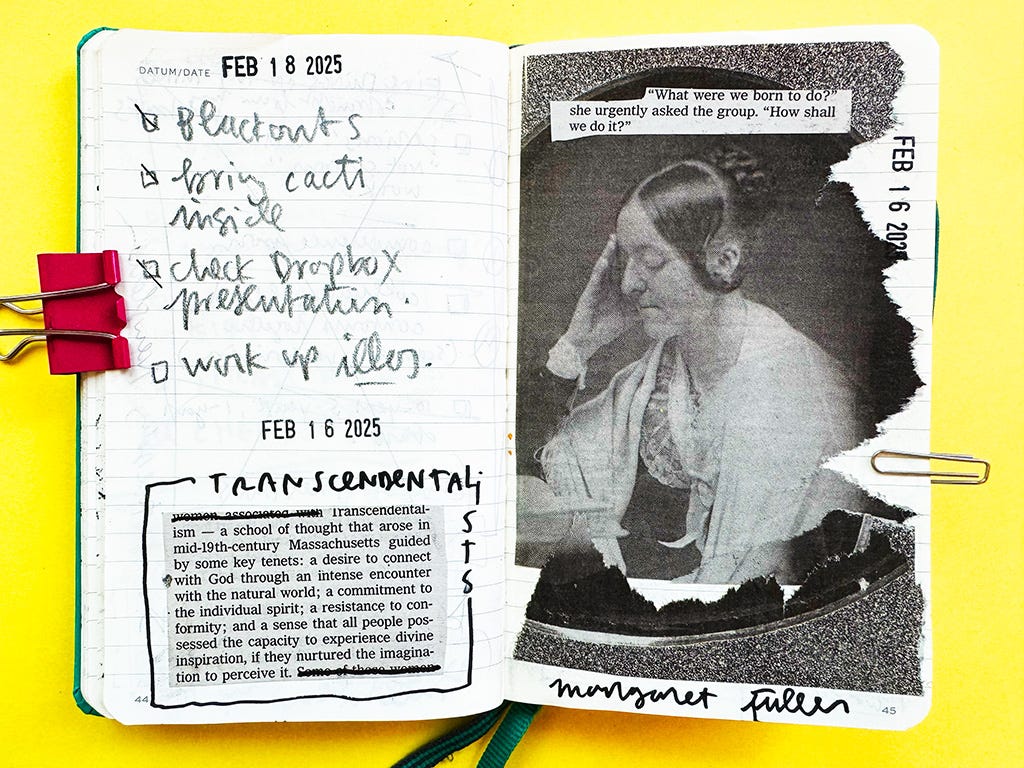 DATUM/DATE FEB 18 2025
Blackouts
bring cacti
inside
check Dropbox
presentation.
work up illos.
FEB 16 2025
TRANSCENDENTALISTS
women associated with Transcendental-
ism — a school of thought that arose in
mid-19th-century Massachusetts guided
by some key tenets: a desire to connect
with God through an intense encounter
with the natural world; a commitment to
the individual spirit; a resistance to con-
formity; and a sense that all people pos-
sessed the capacity to experience divine
inspiration, if they nurtured the imagina-
tion to perceive it. Some of these women
44
“What were we born to do?”
she urgently asked the group. “How shall
we do it?”
FEB 16 202
margaret fuller
45